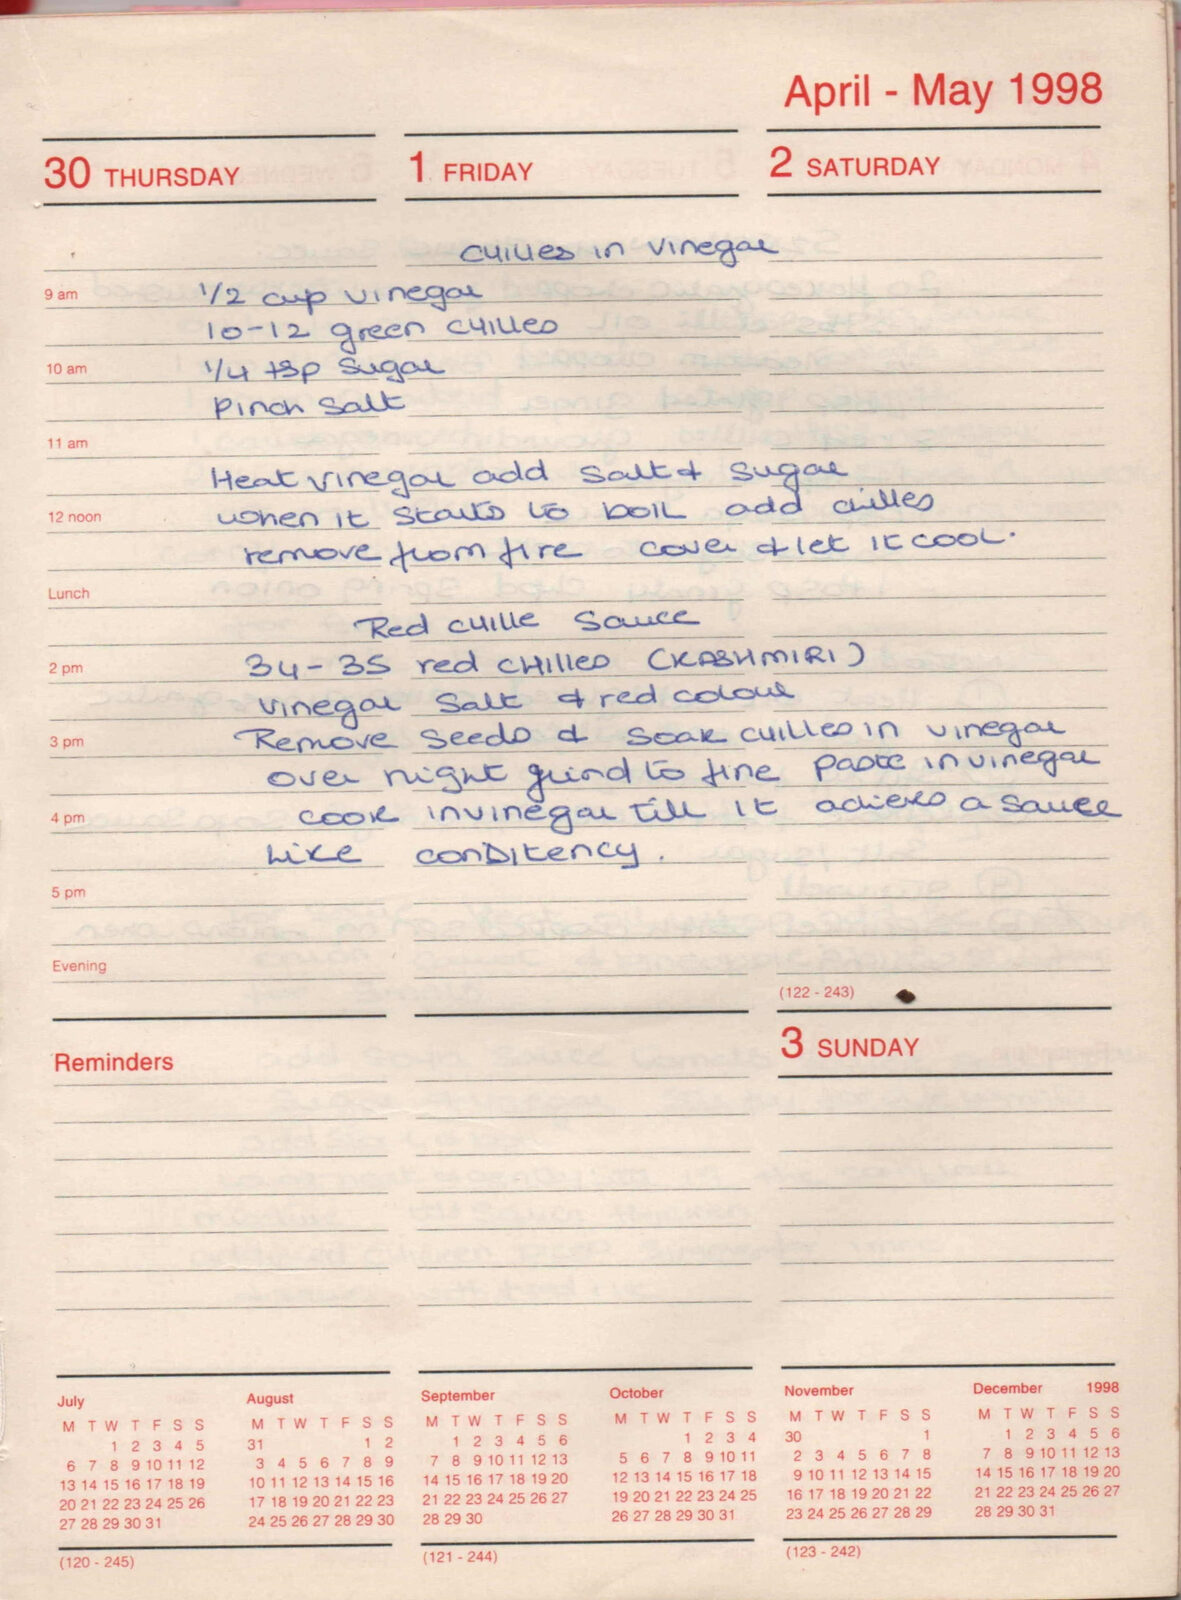 April - May 1998
30 THURSDAY
1 FRIDAY
2 SATURDAY
Chilles in vinegar
9 am
1/2 cup vinegar
10-12 green chilles
10 am
1/4 tsp sugar
Pinch Salt
11 am
Heat vinegar add salt & sugar
12 noon
when it starts to boil add chilles
remove from fire cover & let it cool.
Lunch
Red chille Sauce
2 pm
34-35 red CHILLES (KASHMIRI)
vinegar salt & red colour
3 pm
Remove seeds & soak chilles in vinegar
over night grind to fine paste in vinegar
4 pm
cook in vinegar till it achieves a sauce
like consitency.
5 pm
Evening
(122 - 243)
Reminders
3 SUNDAY
July
M T W T F S S
1 2 3 4 5
6 7 8 9 10 11 12
13 14 15 16 17 18 19
20 21 22 23 24 25 26
27 28 29 30 31
August
M T W T F S S
31 1 2
3 4 5 6 7 8 9
10 11 12 13 14 15 16
17 18 19 20 21 22 23
24 25 26 27 28 29 30
September
M T W T F S S
1 2 3 4 5 6
7 8 9 10 11 12 13
14 15 16 17 18 19 20
21 22 23 24 25 26 27
28 29 30
October
M T W T F S S
1 2 3 4
5 6 7 8 9 10 11
12 13 14 15 16 17 18
19 20 21 22 23 24 25
26 27 28 29 30 31
November
M T W T F S S
30 1
2 3 4 5 6 7 8
9 10 11 12 13 14 15
16 17 18 19 20 21 22
23 24 25 26 27 28 29
December 1998
M T W T F S S
1 2 3 4 5 6
7 8 9 10 11 12 13
14 15 16 17 18 19 20
21 22 23 24 25 26 27
28 29 30 31
(120 - 245)
(121 - 244)
(123 - 242)